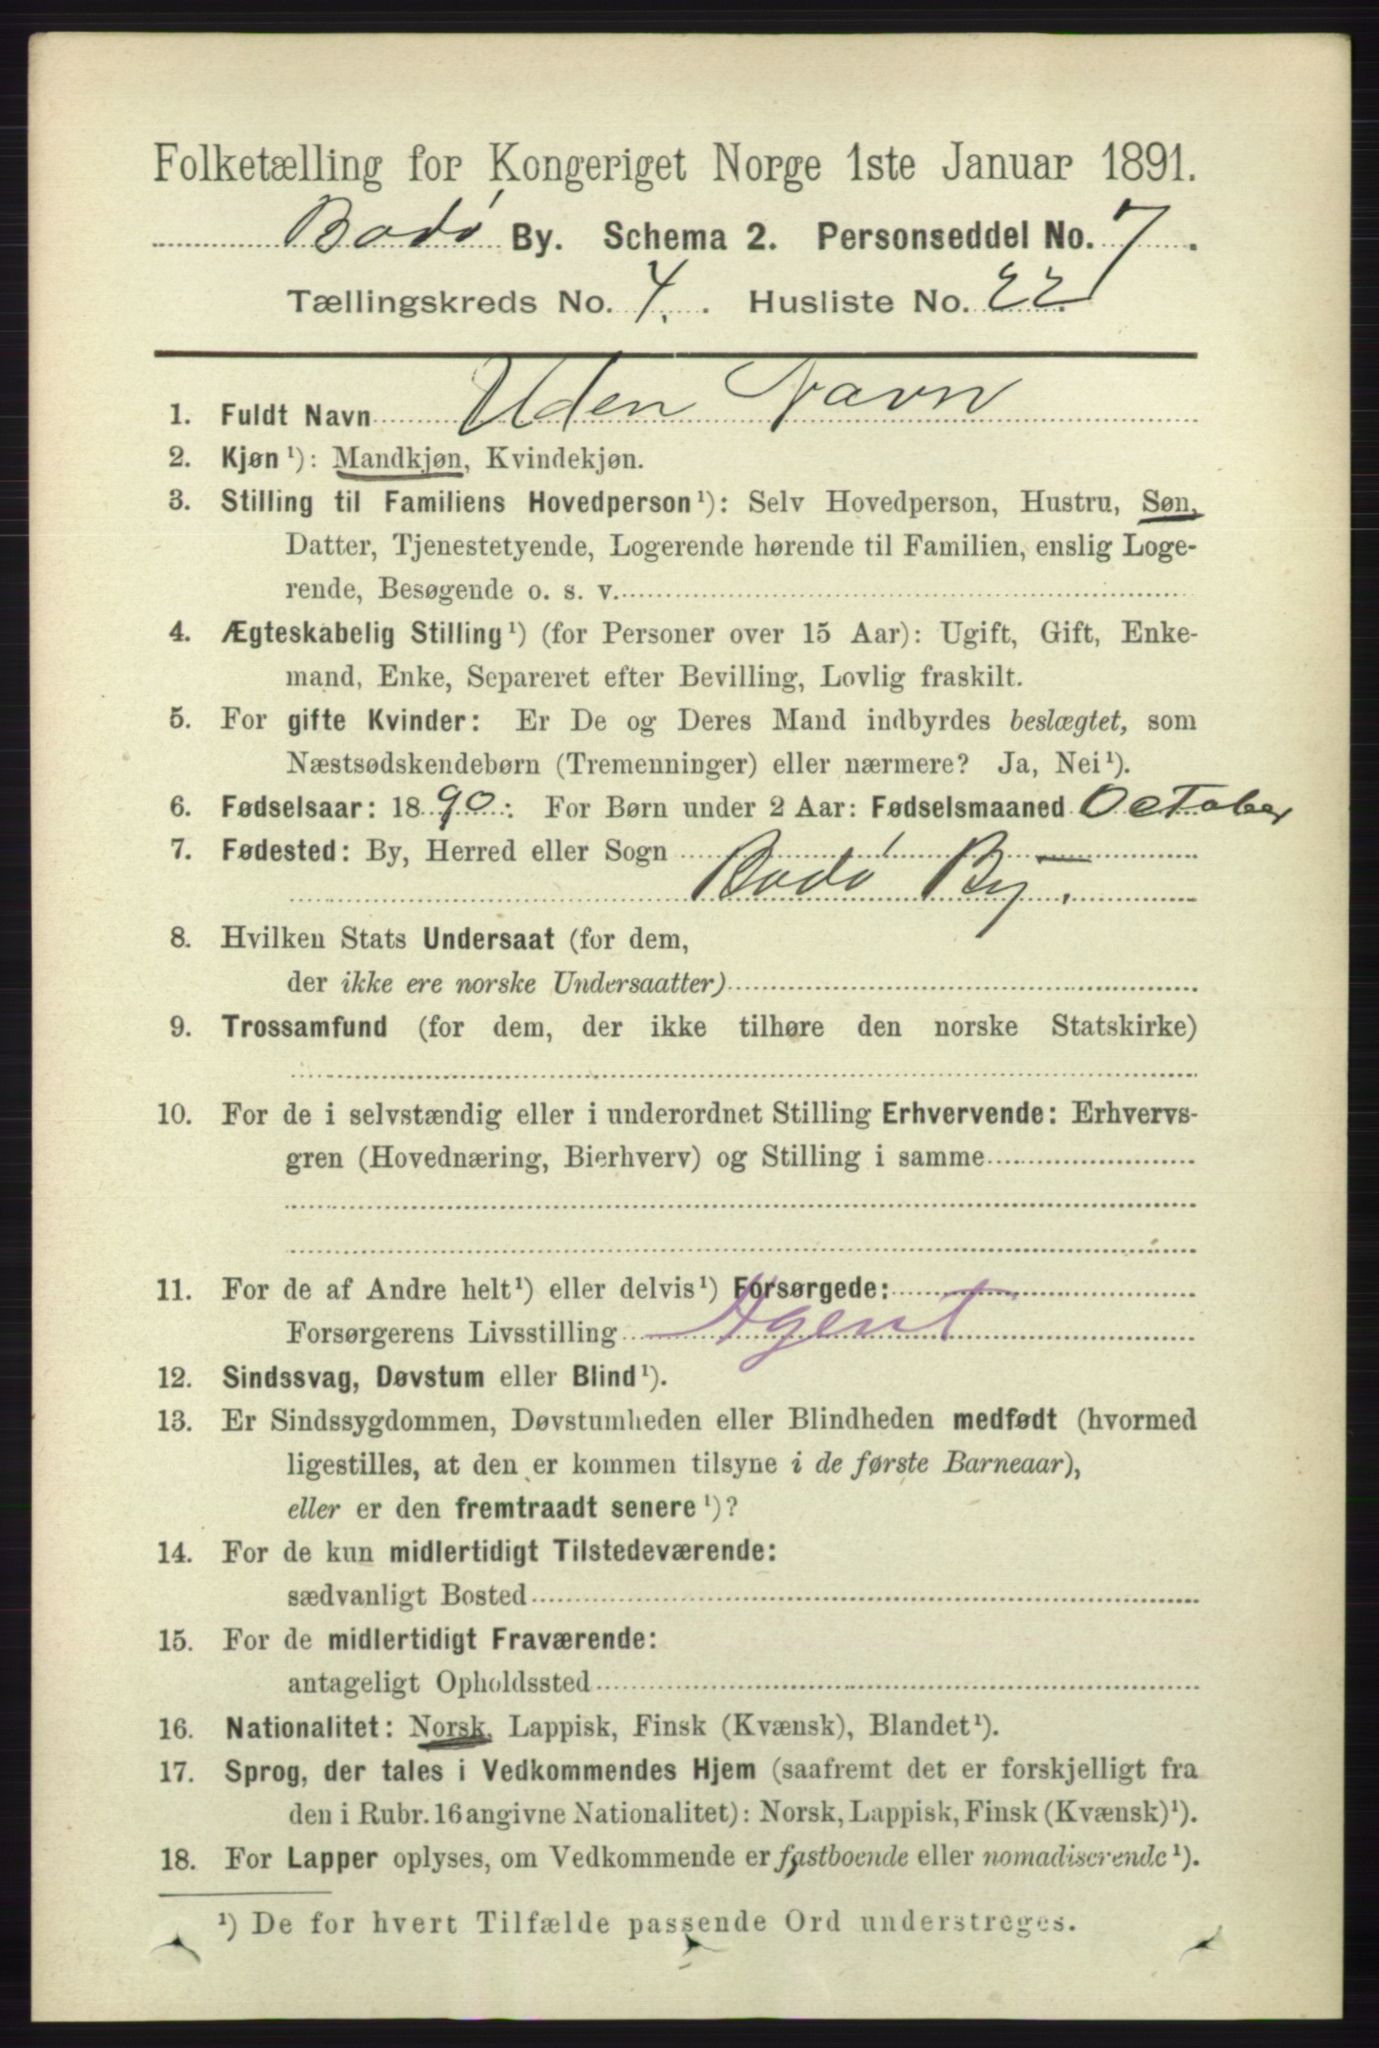 Folketælling for Kongeriget Norge 1ste Januar 1891.
Bodø By. Schema 2. Personseddel No. 7.
Tællingskreds No. 4. Husliste No. 22.
1. Fuldt Navn Uden Navn
2. Kjøn¹): Mandkjøn, Kvindekjøn.
3. Stilling til Familiens Hovedperson¹): Selv Hovedperson, Hustru, Søn,
Datter, Tjenestetyende, Logerende hørende til Familien, enslig Loge-
rende, Besøgende o. s. v.
4. Ægteskabelig Stilling¹) (for Personer over 15 Aar): Ugift, Gift, Enke-
mand, Enke, Separeret efter Bevilling, Lovlig fraskilt.
5. For gifte Kvinder: Er De og Deres Mand indbyrdes beslægtet, som
Næstsødskendebørn (Tremenninger) eller nærmere? Ja, Nei¹).
6. Fødselsaar: 1890: For Børn under 2 Aar: Fødselsmaaned October
7. Fødested: By, Herred eller Sogn
Bodø By.
8. Hvilken Stats Undersaat (for dem,
der ikke ere norske Undersaatter)
9. Trossamfund (for dem, der ikke tilhøre den norske Statskirke)
10. For de i selvstændig eller i underordnet Stilling Erhvervende: Erhvervs-
gren (Hovednæring, Bierhverv) og Stilling i samme
11. For de af Andre helt¹) eller delvis¹) Forsørgede:
Forsørgerens Livsstilling Agent
12. Sindssvag, Døvstum eller Blind¹).
13. Er Sindssygdommen, Døvstumheden eller Blindheden medfødt (hvormed
ligestilles, at den er kommen tilsyne i de første Barneaar),
eller er den fremtraadt senere¹)?
14. For de kun midlertidigt Tilstedeværende:
sædvanligt Bosted
15. For de midlertidigt Fraværende:
antageligt Opholdssted
16. Nationalitet: Norsk, Lappisk, Finsk (Kvænsk), Blandet¹).
17. Sprog, der tales i Vedkommendes Hjem (saafremt det er forskjelligt fra
den i Rubr. 16 angivne Nationalitet): Norsk, Lappisk, Finsk (Kvænsk)¹).
18. For Lapper oplyses, om Vedkommende er fastboende eller nomadiserende¹).
¹) De for hvert Tilfælde passende Ord understreges.